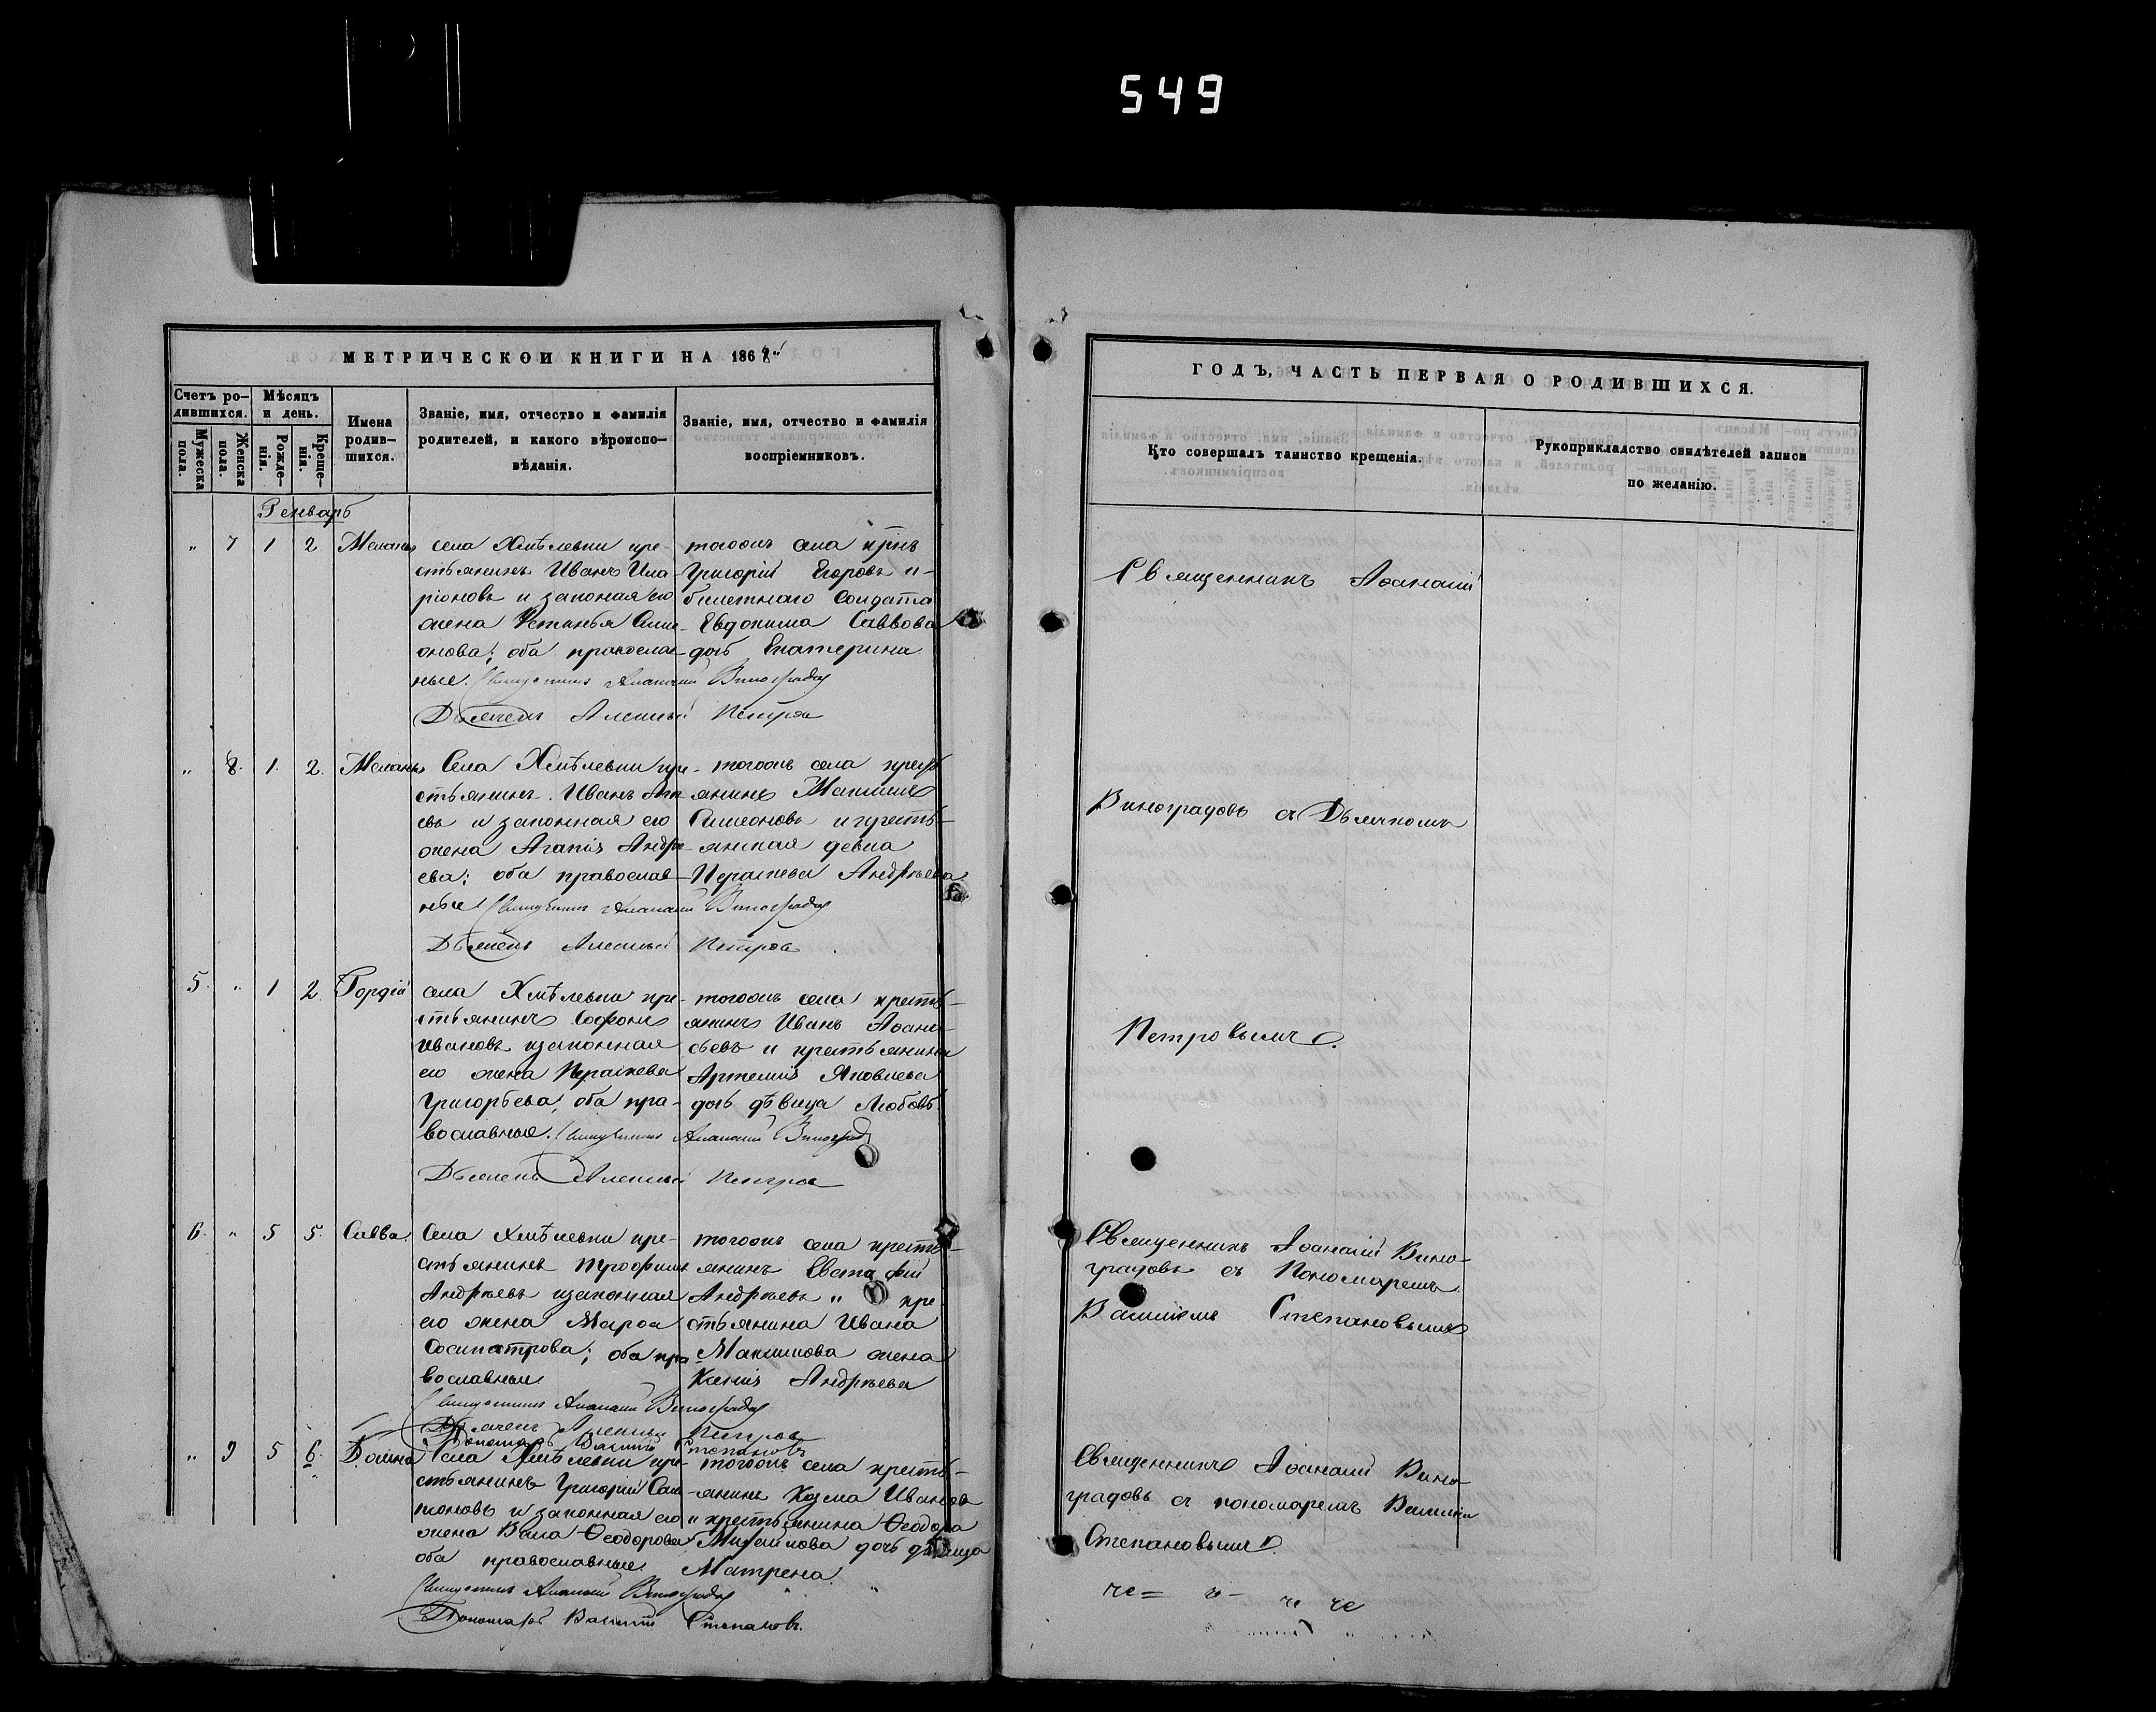 549
МЕТРИЧЕСКОЙ КНИГИ НА 1868й
Счетъ ро-
дившихся.
Мужеска
пола.
Женска
пола.
Мѣсяцъ
и день.
Рожде-
нія.
Креще-
нія.
Имена
родив-
шихся.
Званіе, имя, отчество и фамилія
родителей, и какого вѣроиспо-
вѣданія.
Званіе, имя, отчество и фамилія
воспріемниковъ.
Генварь
" 7 1 2
села Хмѣлевки кре-
стьянинъ Иванъ Ила-
ріоновъ и законная его
жена Устинья Симе-
онова; оба православ-
ные. Священникъ Аѳанасій Виноградов
Дьячекъ Алексѣй Петров
тогожъ села крнъ
Григорій Егоровъ и
билетнаго солдата
Евдокима Саввова
дочь Екатерина
" 8. 1. 2.
Села Хмѣлевки кре-
стьянинъ Иванъ
евъ и законная его
жена Агапія Андре-
ева; оба православ-
ные Священникъ Аѳанасій Виноградов
Дьячекъ Алексѣй Петров
тогожъ села крест
янинъ Максимъ
Симеоновъ и кресть-
янская девка
Параскева Андрѣева
5. " 1 2. Гордій
села Хмѣлевки кре-
стьянинъ Софонъ
Ивановъ и законная
его жена Параскева
Григорьева, оба пра-
вославные. Священникъ Аѳанасій Виноград
Дьячекъ Алексѣй Петров
тогожъ села кресть-
янинъ Иванъ Аѳана-
сьевъ и крестьянина
Артемія Яковлева
дочь дѣвица Любовь.
6. " 5 5. Савва.
Села Хмѣлевки кре-
стьянинъ Трофимъ
Андрѣевъ и законная
его жена Марѳа
Сосипатрова; оба пра
вославные
Священникъ Аѳанасій Виноградов
Дьячекъ Алексѣй Петров
Пономарь Василій Степановъ
тогожъ села кресть-
янинъ Евстафій
Андрѣевъ " кре-
стьянина Ивана
Максимова жена
Ксенія Андрѣева
" 9 5 6. Домна
Села Хмѣлевки кре-
стьянинъ Григорій
и законная его
жена Васса Ѳеодорова
оба православные.
Священникъ Аѳанасій Виноградов
Пономарь Василій Степановъ.
тогожъ села кресть-
янинъ Козма Ивановъ
и крестьянина Ѳеодора
Михайлова дочь дѣвица
Матрена.
ГОДЪ, ЧАСТЬ ПЕРВАЯ О РОДИВШИХСЯ.
Кто совершалъ таинство крещенія.
Рукоприкладство свидѣтелей записи
по желанію.
Священникъ Аѳанасій
Виноградовъ съ Дьячкомъ
Петровымъ.
Священникъ Аѳанасій Вино-
градовъ съ Пономаремъ
Василіемъ Степановымъ
Священникъ Аѳанасій Вино-
градовъ съ пономаремъ Василіем
Степановымъ.